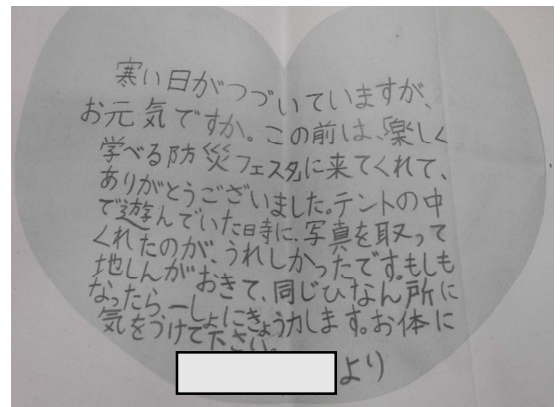 寒い日がつづいていますが、
お元気ですか。この前は、楽しく
学べる防災フェスタに来てくれて、
ありがとうございました。テントの中
で遊んでいた時に、写真を取って
くれたのが、うれしかったです。もしも
地しんがおきて、同じひなん所に
なったら、一しょにきょう力します。お体に
気をつけて下さい。
より